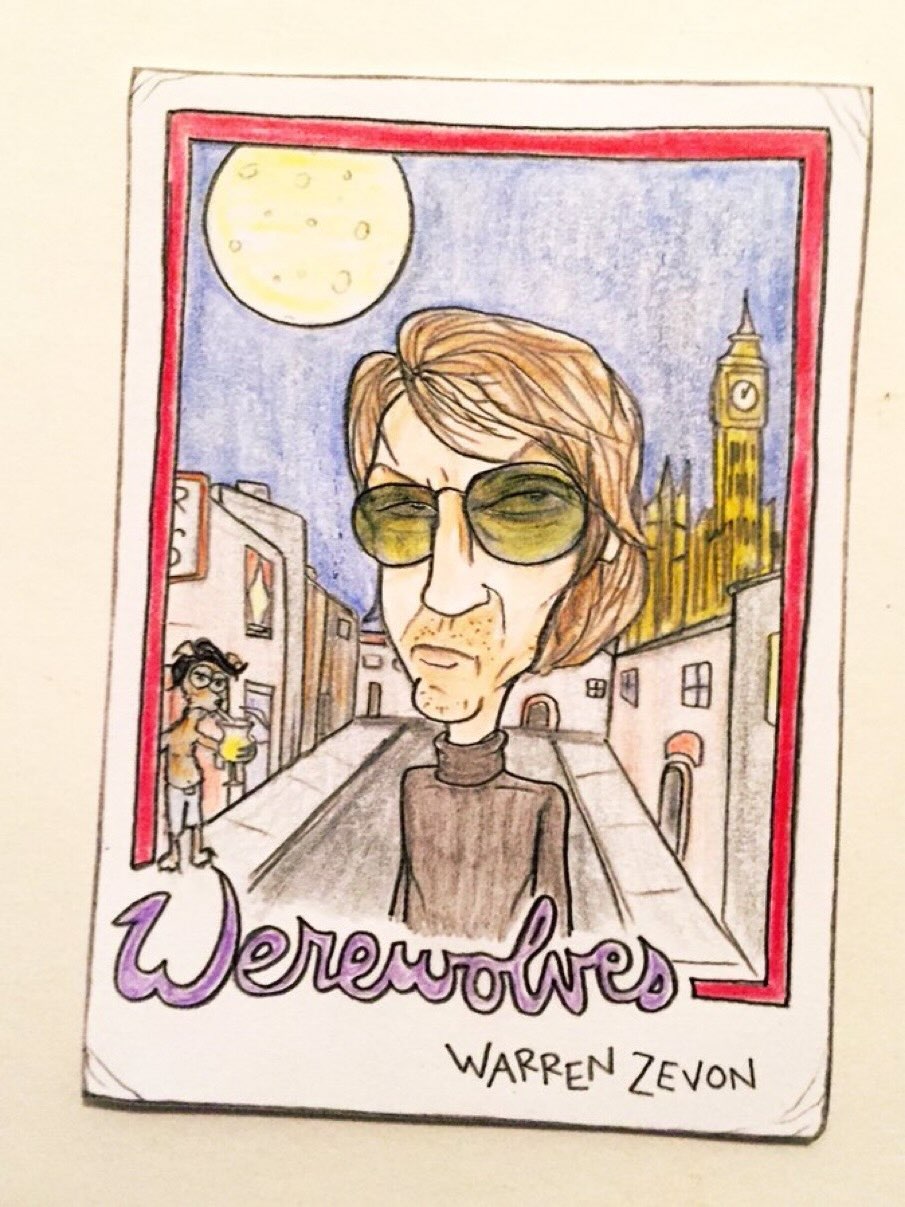 Werewolves
WARREN ZEVON